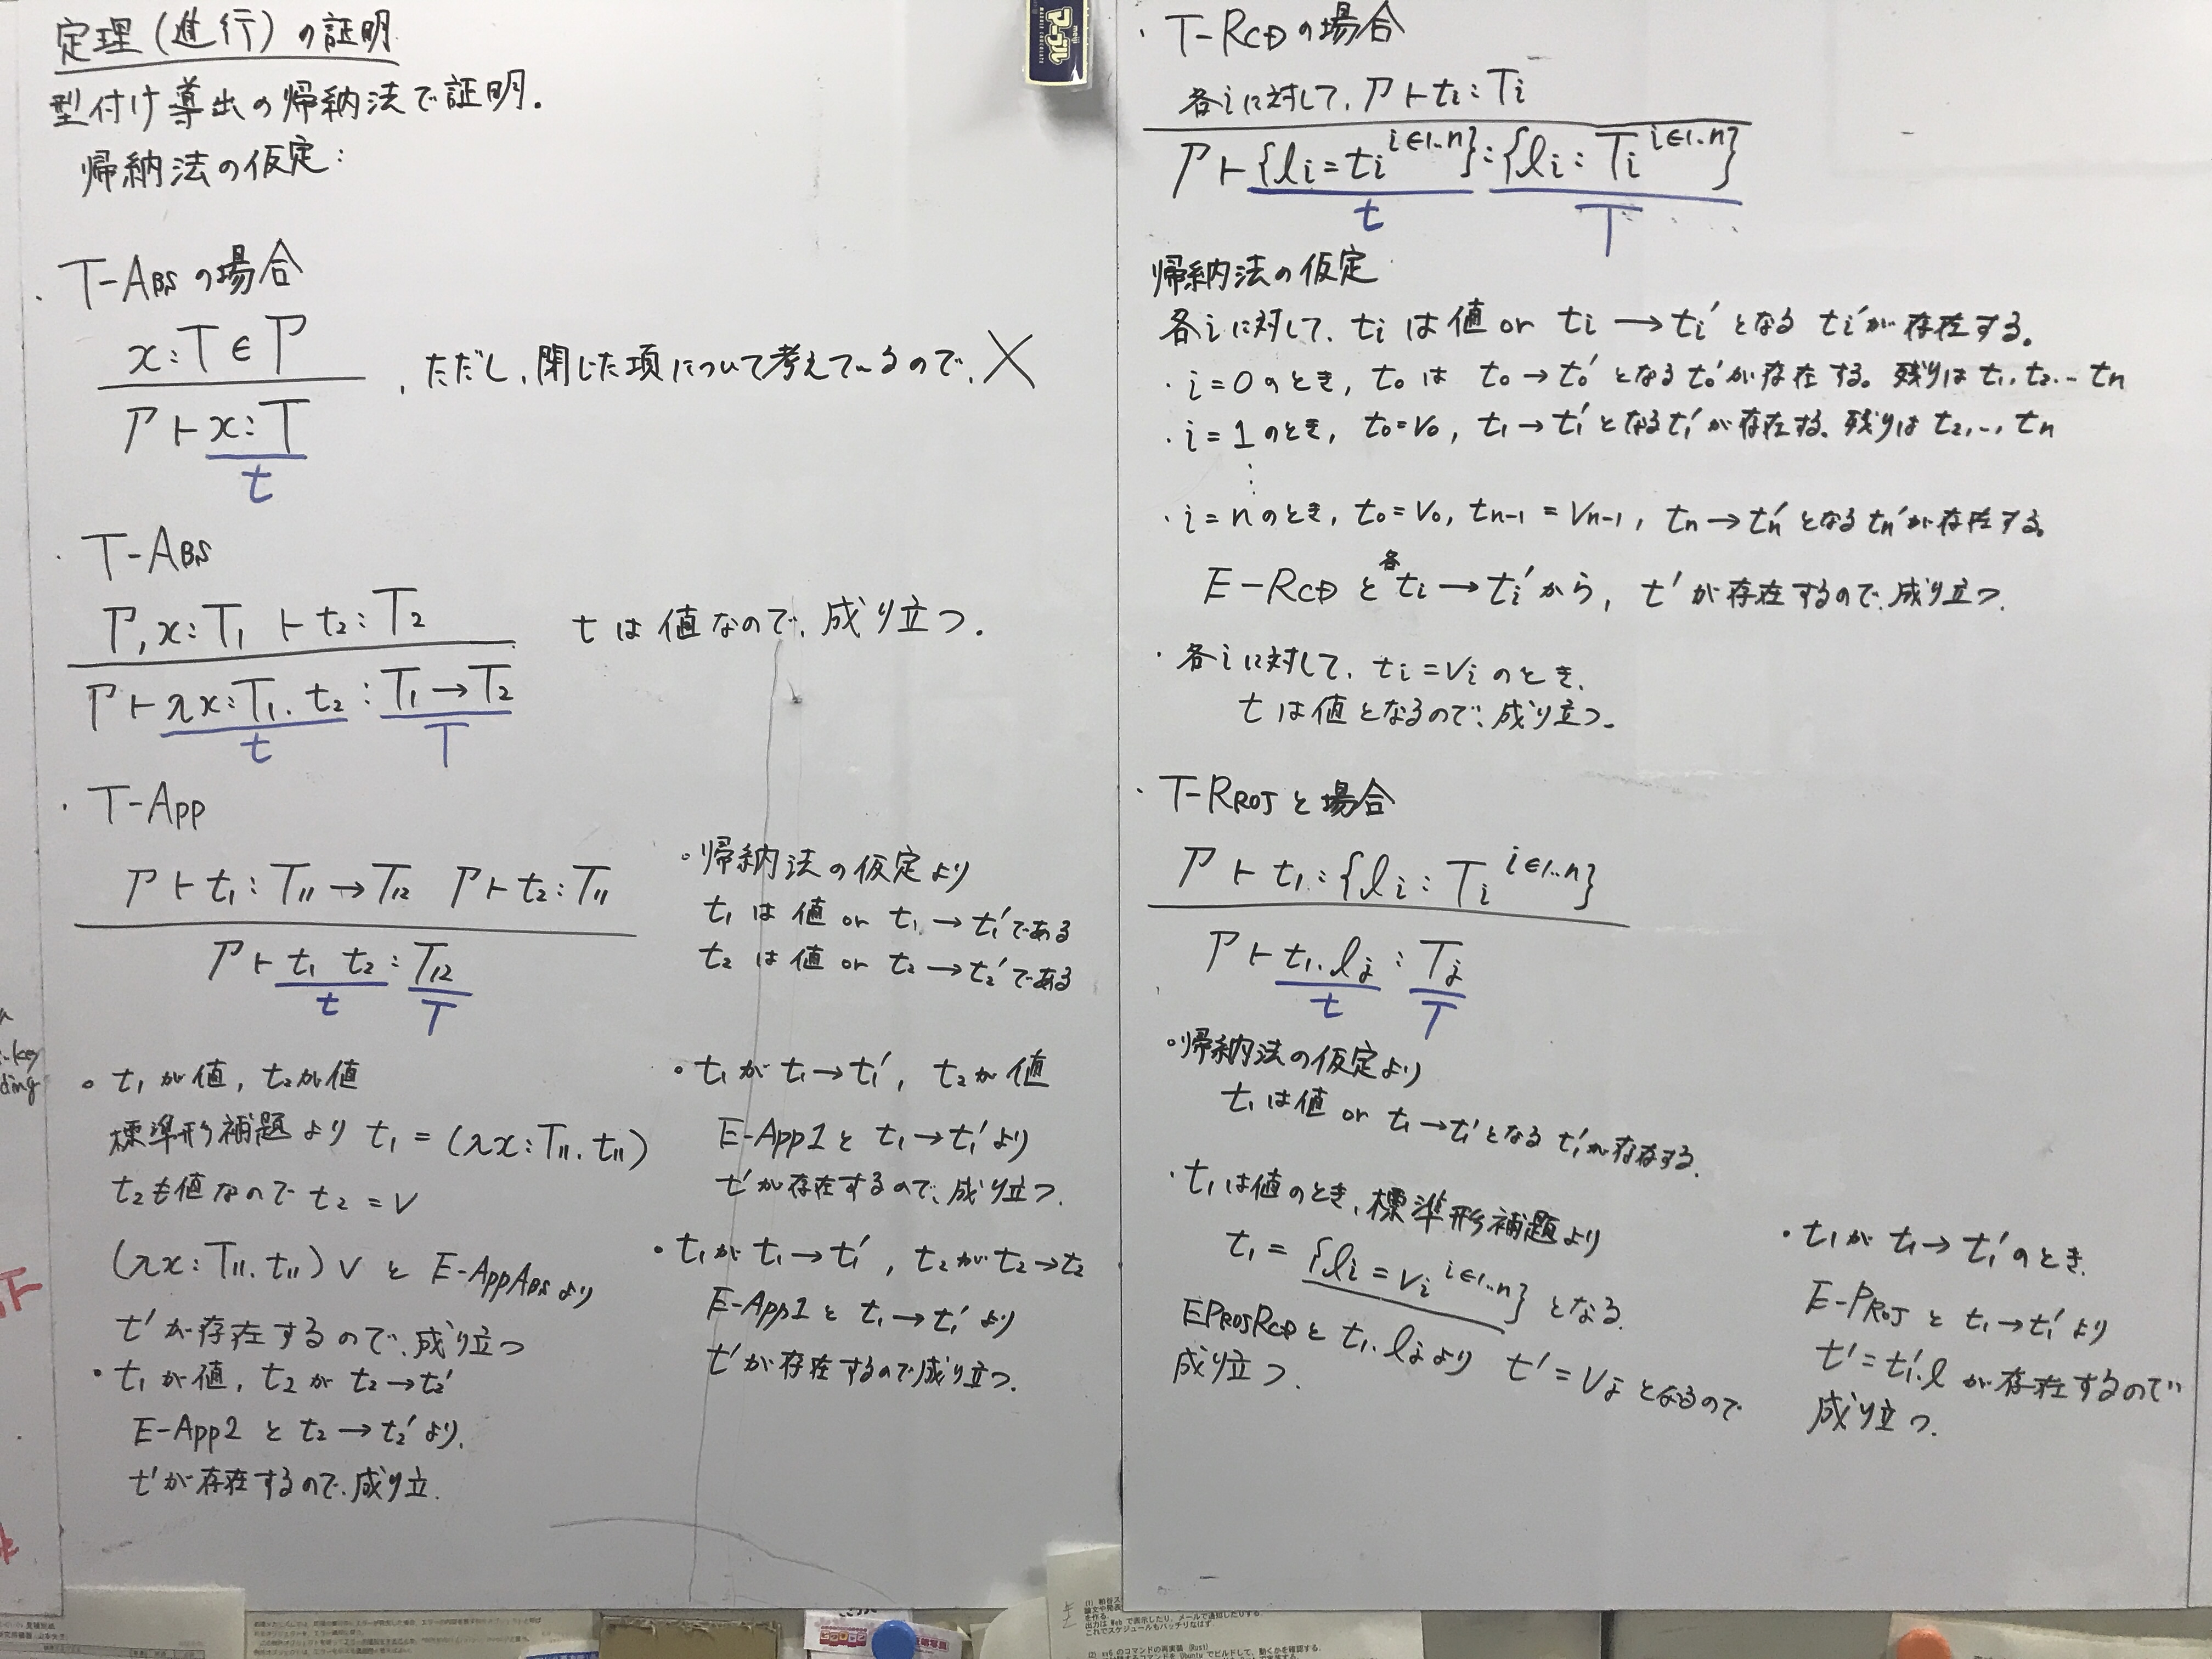 定理(進行)の証明
型付け導出の帰納法で証明.
帰納法の仮定:
・T-ABSの場合
x:T∈Γ
Γ⊢x:T
t
,ただし,閉じた項について考えているので,×
・T-ABS
Γ,x:T₁ ⊢ t₂:T₂
Γ⊢λx:T₁.t₂:T₁→T₂
t T
tは値なので,成り立つ.
・T-APP
Γ⊢t₁:T₁₁→T₁₂ Γ⊢t₂:T₁₁
Γ⊢t₁ t₂:T₁₂
t T
・帰納法の仮定より
t₁は値 or t₁→t₁'である
t₂は値 or t₂→t₂'である
・t₁が値,t₂が値
標準形補題よりt₁=(λx:T₁₁.t₁₁)
t₂も値なのでt₂=v
(λx:T₁₁.t₁₁)vとE-APPABSより
t'が存在するので,成り立つ
・t₁が値,t₂がt₂→t₂'
E-APP2とt₂→t₂'より,
t'が存在するので,成り立.
・t₁がt₁→t₁',t₂が値
E-APP1とt₁→t₁'より
t'が存在するので,成り立つ.
・t₁がt₁→t₁',t₂がt₂→t₂
E-APP1とt₁→t₁'より
t'が存在するので成り立つ.
meiji
マーブル
・T-RCDの場合
各iに対して,Γ⊢tᵢ:Tᵢ
Γ⊢{lᵢ=tᵢ i∈1..n}:{lᵢ:Tᵢ i∈1..n}
t T
帰納法の仮定
各iに対して,tᵢは値 or tᵢ→tᵢ'となるtᵢ'が存在する。
・i=0のとき,t₀はt₀→t₀'となるt₀'が存在する。残りはt₁,t₂...tₙ
・i=1のとき,t₀=v₀,t₁→t₁'となるt₁'が存在する.残りはt₂,..,tₙ
⋮
・i=nのとき,t₀=v₀,tₙ₋₁=vₙ₋₁,tₙ→tₙ'となるtₙ'が存在する。
E-RCDと各tᵢ→tᵢ'から,t'が存在するので,成り立つ.
・各iに対して,tᵢ=vᵢのとき,
tは値となるので,成り立つ。
・T-RROJと場合
Γ⊢t₁:{lᵢ:Tᵢ i∈1..n}
Γ⊢t₁.lⱼ:Tⱼ
t T
・帰納法の仮定より
t₁は値 or t₁→t₁'となるt₁'が存在する.
・t₁は値のとき,標準形補題より
t₁={lᵢ=vᵢ i∈1..n}となる.
EPROJRCDとt₁.lⱼより t'=vⱼとなるので
成り立つ.
・t₁がt₁→t₁'のとき,
E-PROJとt₁→t₁'より
t'=t₁'.lが存在するので
成り立つ.